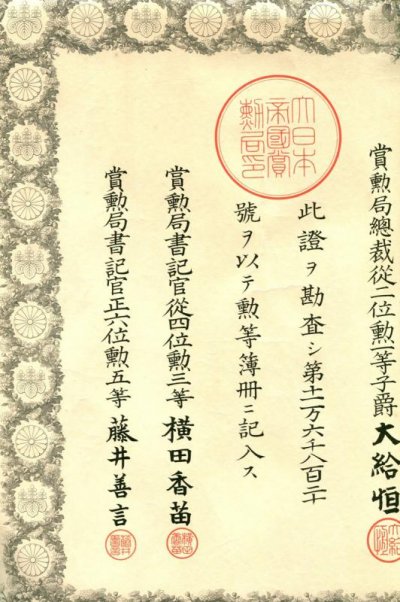 賞勳局總裁從二位勳一等子爵大給恒
大日本帝國賞勳局印
此證ヲ勘査シ第十一万六千八百二十
號ヲ以テ勳等簿册ニ記入ス
賞勳局書記官從四位勳三等 横田香苗
賞勳局書記官正六位勳五等 藤井善言